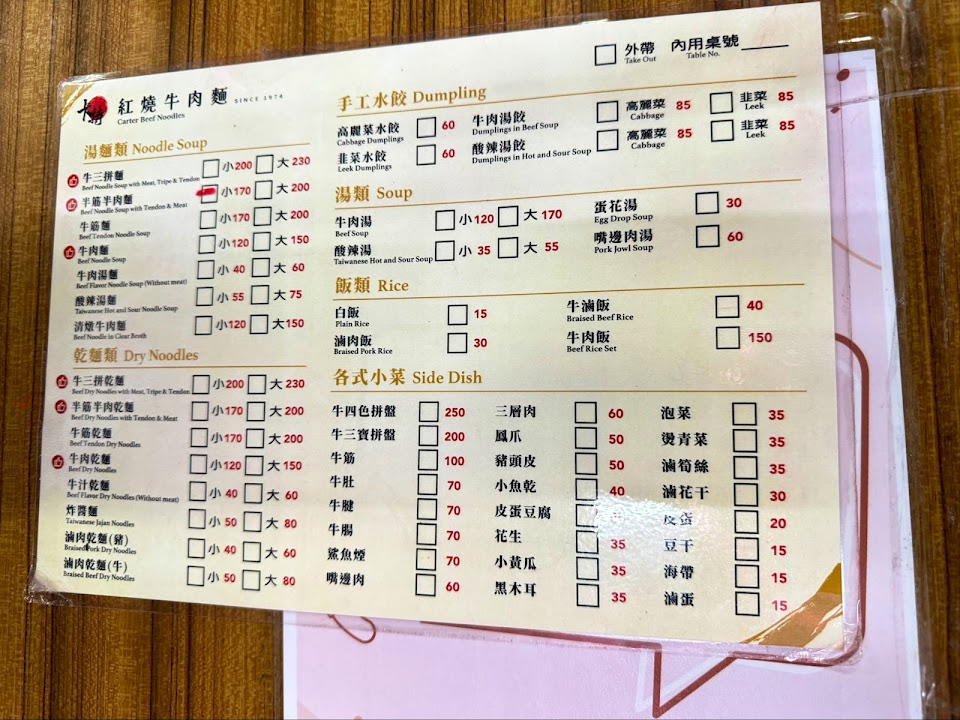 外帶 內用桌號
Take Out Table No.
卡特 紅燒牛肉麵 SINCE 1974
Carter Beef Noodles
湯麵類 Noodle Soup
牛三拼麵 小 200 大 230
Beef Noodle Soup with Meat, Tripe & Tendon
半筋半肉麵 小 170 大 200
Beef Noodle Soup with Tendon & Meat
牛筋麵 小 170 大 200
Beef Tendon Noodle Soup
牛肉麵 小 120 大 150
Beef Noodle Soup
牛肉湯麵 小 40 大 60
Beef Flavor Noodle Soup (Without meat)
酸辣湯麵 小 55 大 75
Taiwanese Hot and Sour Noodle Soup
清燉牛肉麵 小 120 大 150
Beef Noodle in Clear Broth
乾麵類 Dry Noodles
牛三拼乾麵 小 200 大 230
Beef Dry Noodles with Meat, Tripe & Tendon
半筋半肉乾麵 小 170 大 200
Beef Dry Noodles with Tendon & Meat
牛筋乾麵 小 170 大 200
Beef Tendon Dry Noodles
牛肉乾麵 小 120 大 150
Beef Dry Noodles
牛汁乾麵 小 40 大 60
Beef Flavor Dry Noodles (Without meat)
炸醬麵 小 50 大 80
Taiwanese Jajan Noodles
滷肉乾麵(豬) 小 40 大 60
Braised Pork Dry Noodles
滷肉乾麵(牛) 小 50 大 80
Braised Beef Dry Noodles
手工水餃 Dumpling
高麗菜水餃 60
Cabbage Dumplings
韭菜水餃 60
Leek Dumplings
牛肉湯餃 高麗菜 85 韭菜 85
Dumplings in Beef Soup Cabbage Leek
酸辣湯餃 高麗菜 85 韭菜 85
Dumplings in Hot and Sour Soup Cabbage Leek
湯類 Soup
牛肉湯 小 120 大 170
Beef Soup
酸辣湯 小 35 大 55
Taiwanese Hot and Sour Soup
蛋花湯 30
Egg Drop Soup
嘴邊肉湯 60
Pork Jowl Soup
飯類 Rice
白飯 15
Plain Rice
滷肉飯 30
Braised Pork Rice
牛滷飯 40
Braised Beef Rice
牛肉飯 150
Beef Rice Set
各式小菜 Side Dish
牛四色拼盤 250
牛三寶拼盤 200
牛筋 100
牛肚 70
牛腱 70
牛腸 70
鯊魚煙 70
嘴邊肉 60
三層肉 60
鳳爪 50
豬頭皮 50
小魚乾 40
皮蛋豆腐
花生 35
小黃瓜 35
黑木耳 35
泡菜 35
燙青菜 35
滷筍絲 35
滷花干 30
皮蛋 20
豆干 15
海帶 15
滷蛋 15